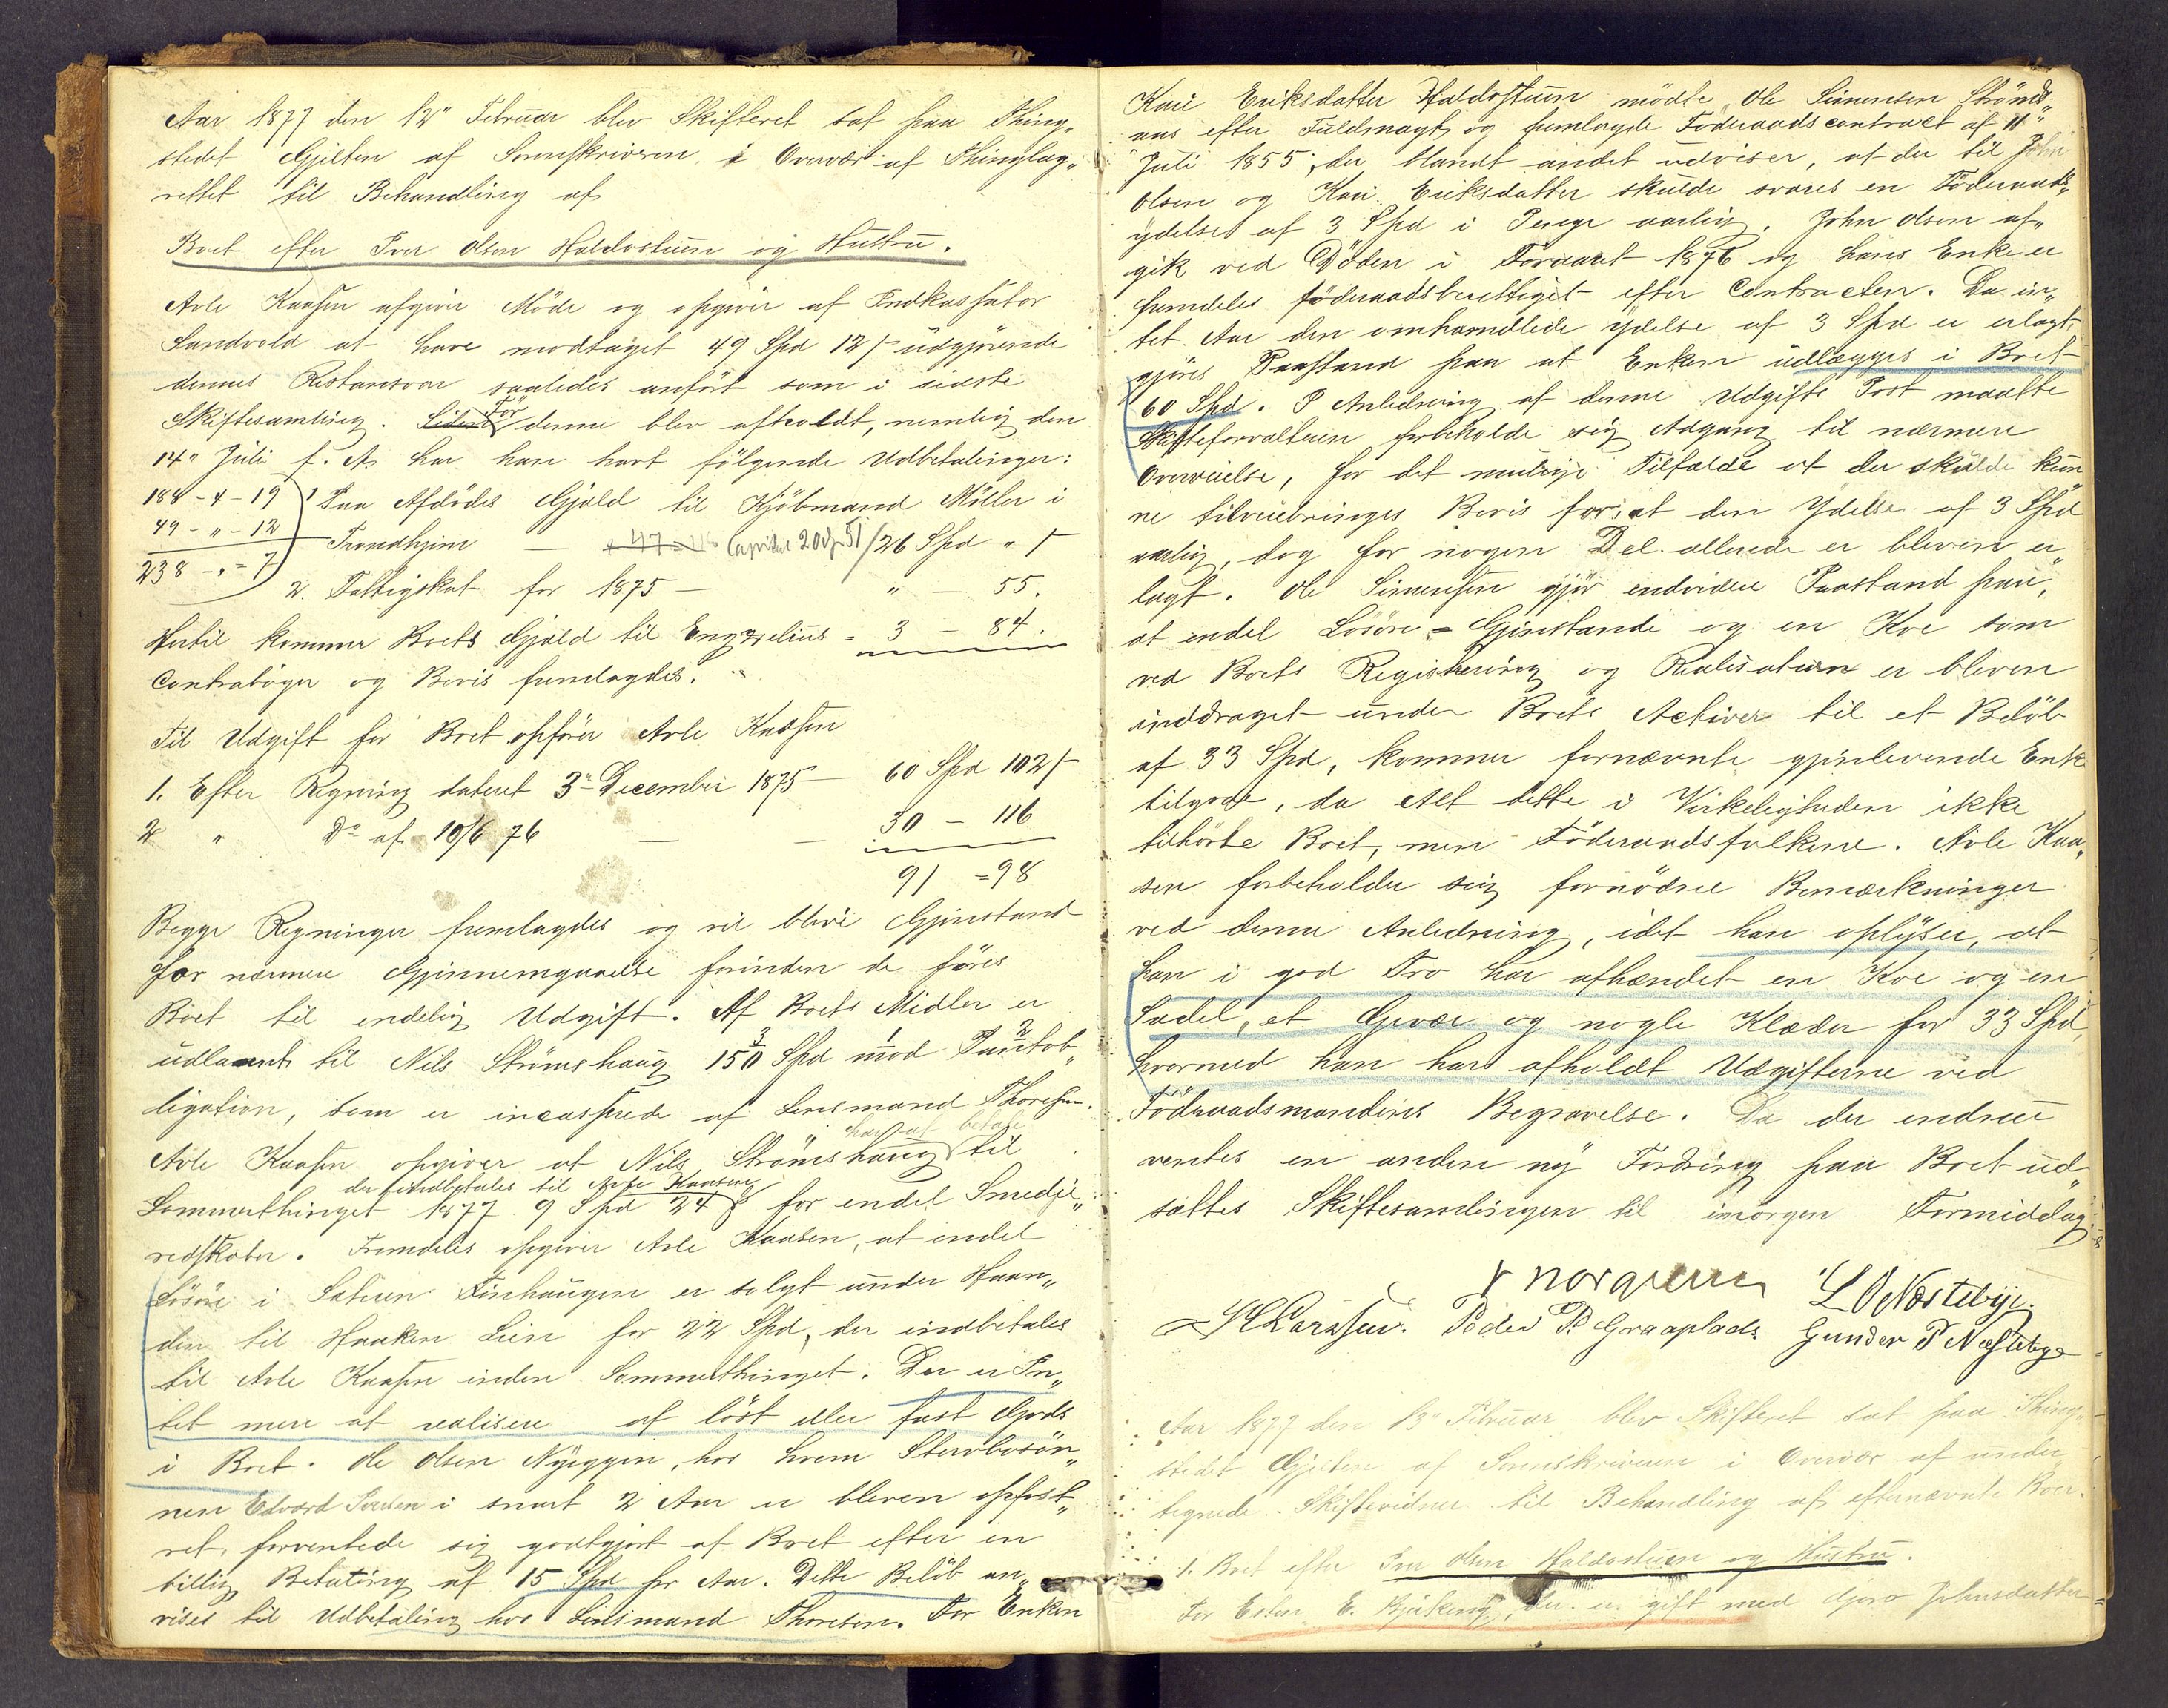 Aar 1877 den 12" Februar blev Skifteret sat paa Thing„
stedet Gjelten af Sorenskriveren i Overvær af Thinglag„
rettet til Behandling af
Boet efter Iver Olsen Haldostuen og Hustru.
Arle Kaasen afgiver Møde og opgiver af Indkassator
Sandvold at have modtaget 49 Spd 12 s udgjørende
dennes Restansvar saaledes anført som i sidste
Skiftesamling. Siden Før denne blev afholdt, nemlig den
14" Juli f. A. har han havt følgende Udbetalinger:
188 - 4 - 19 1 Paa Afdødes Gjæld til Kjøbmand Møller i
49 - " - 12 Trondhjem — Capital 20 /26 Spd " s
238 - " - 7
2. Fattigskat for 1875 — " — 55.
Hertil kommer Boets Gjæld til Engzelius = 3 — 84.
Contrabøger og Bevis fremlagdes.
Til Udgift for Boet opfører Arle Kaasen
1. Efter Regning dateret 3" December 1875 — 60 Spd 102 s
2 " Do af 10/6 76 — — 30 — 116
91 = 98
Begge Regninger fremlagdes og vil blive Gjenstand
for nærmere Gjennemgaaelse forinden de føres
Boet til endelig Udgift. Af Boets Midler er
udlaant til Nils Strømshaug 150 Spd mod Pantob„
ligation, som er incasserede af Lensmand Thoresen.
Arle Kaasen opgiver at Nils Strømshaug har at betale til
Sommerthinget 1877 9 Spd 24 s der indbetales til Arle Kaasen for endel Smedje„
redskaber. Fremdeles opgiver Arle Kaasen, at endel
Løsøre i Sæteren Finhaugen er solgt under Haan„
den til Haaken Lien for 22 Spd, der indbetales
til Arle Kaasen inden Sommerthinget. Der er In„
tet mere at realisere af løst eller fast Gods
i Boet. Ole Olsen Nyeggen, hos hvem Stervbosøn„
nen Edvard Iversen i snart 2 Aar er bleven opfost„
ret, forventede sig godtgjort af Boet efter en
billig Betaling af 15 Spd pr Aar. Dette Beløb an„
vises til Udbetaling hos Lensmand Thoresen. For Enken
Kari Eriksdatter Haldostuen mødte Ole Simensen Strømts„
aas efter Fuldmagt og fremlagde Føderaadscontract af 11"
Juli 1855, der blandt andet udviser, at der til John
Olsen og Kari Eriksdatter skulde svares en Føderaads„
ydelse af 3 Spd i Penge aarlig. John Olsen af„
gik ved Døden i Foraaret 1876 og hans Enke er
fremdeles føderaadsberettiget efter Contracten. Da in„
tet Aar den omhandlede Ydelse af 3 Spd er erlagt,
gjøres Paastand paa at Enken udlægges i Boet
60 Spd. I Anledning af denne Udgifts Post maatte
Skifteforvalteren forbeholde sig Adgang til nærmere
Overveielse, for det mulige Tilfælde at der skulde kun„
ne tilveiebringes Bevis for, at den Ydelse af 3 Spd
aarlig, dog for nogen Del allerede er bleven er„
lagt. Ole Simensen gjør endvidere Paastand paa,
at endel Løsøre = Gjenstande og en Koe som
ved Boets Registrering og Realisation er bleven
inddraget under Boets Activer til et Beløb
af 33 Spd, kommer fornævnte gjenlevende Enke
tilgode, da Alt dette i Virkeligheden ikke
tilhørte Boet, men Føderaadsfolkene. Arle Kaa„
sen forbeholder sig fornødne Bemærkninger
ved denne Anledning, idet han oplyser, at
han i god Tro har afhændet en Koe og en
Sadel, et Gevær og nogle Klæder for 33 Spd,
hvormed han har afholdt Udgifterne ved
Føderaadsmandens Begravelse. Da der endnu
ventes en anden ny Fordring paa Boet ud„
sattes Skiftesamlingen til imorgen Formiddag.
Norgreen L O Næstebye.
H Larssen. Peder P. Graaplads Gunder P Næstebye
Aar 1877 den 13" Februar blev Skifteret sat paa Thing„
stedet Gjelten af Sorenskriveren i Overvær af under„
tegnede Skiftevidner til Behandling af efternævnte Boer.
1. Boet efter Iver Olsen Haldostuen og Hustru.
For Esten E. Bjørkeng, der er gift med Goro Johnsdatter